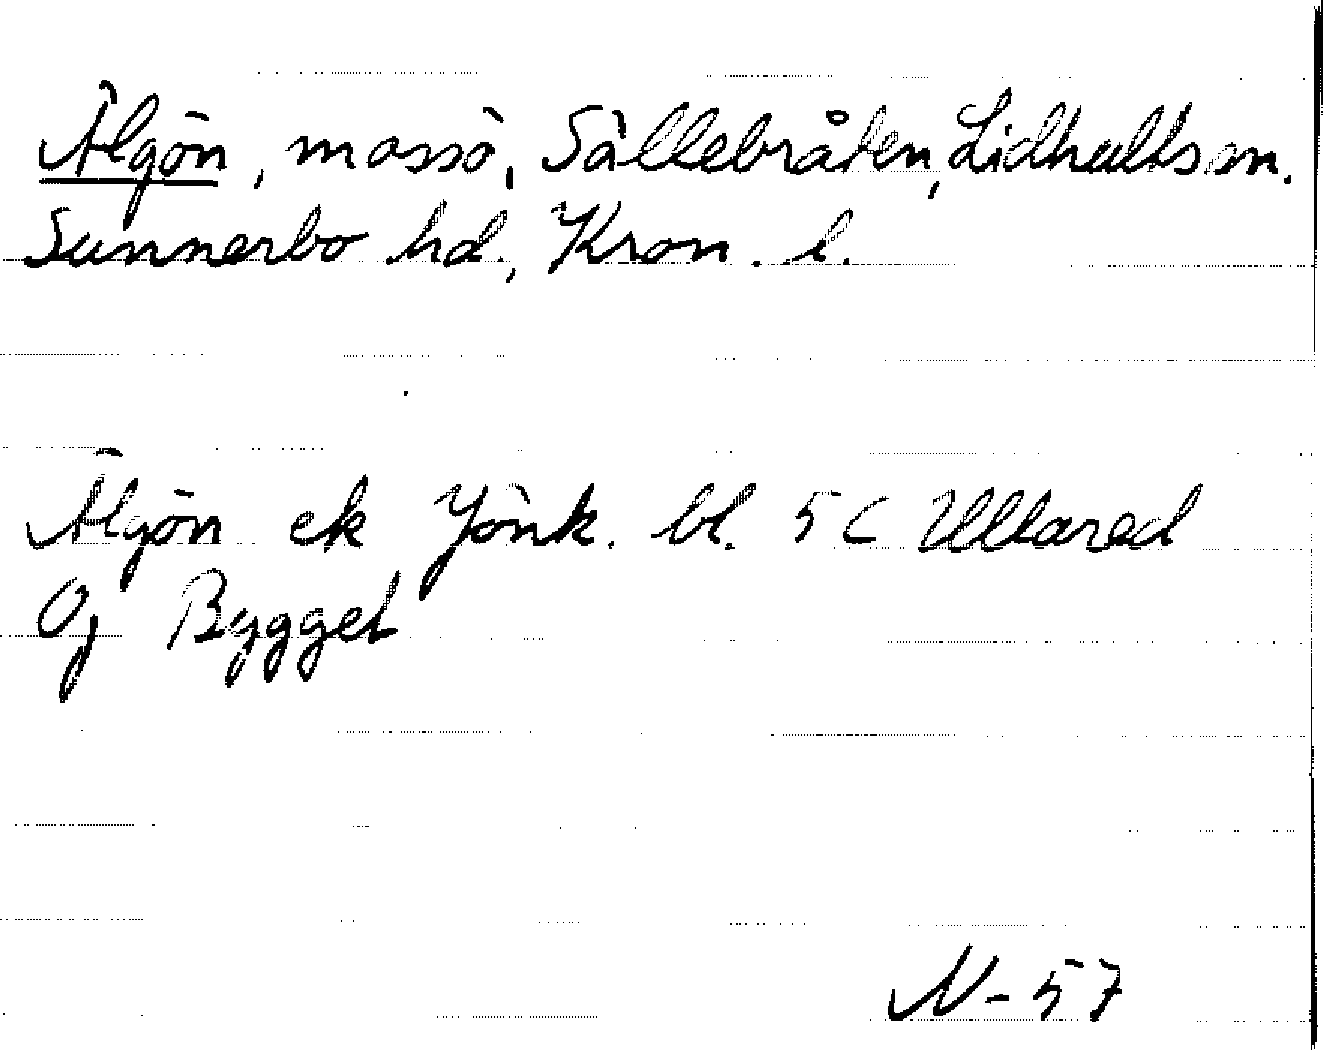 Älgön, mossö, Sällebråten, Lidhults sn.
Sunnerbo hd., Kron. l.
Älgön ek Jönk. bl. 5C Ullared
Oj Bygget
N-57